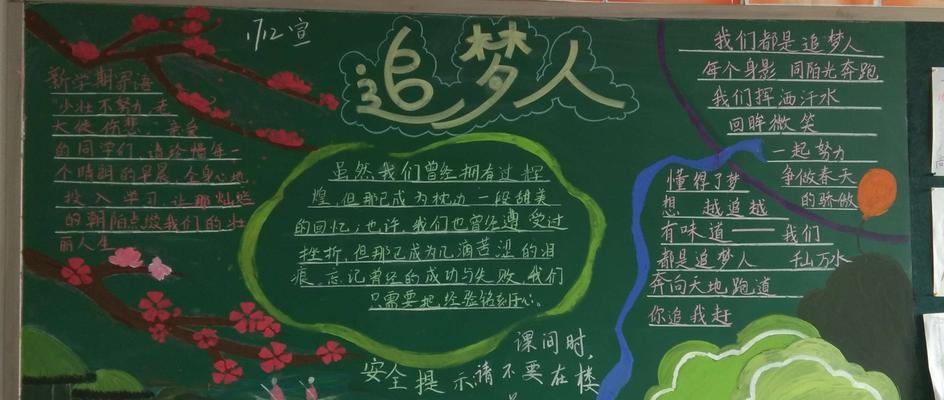 1712宣
追梦人
新学期寄语
少壮不努力,老
大徒伤悲,亲爱
的同学们,请珍惜每一
个晴朗的早晨,全身心地
投入学习,让那灿烂
的朝阳点缀我们的壮
丽人生
虽然我们曾经拥有过辉
煌,但那已成为枕边一段甜美
的回忆;也许,我们也曾经遭受过
挫折,但那已成为几滴苦涩的泪
痕。忘记曾经的成功与失败,我们
只需要把经验铭刻于心。
我们都是追梦人
每个身影 同阳光奔跑
我们挥洒汗水
回眸微笑
一起努力
争做春天
的骄傲
懂得了梦
想 越追越
有味道——我们
都是追梦人 千山万水
奔向天地跑道
你追我赶
课间时,
安全提示请不要在楼